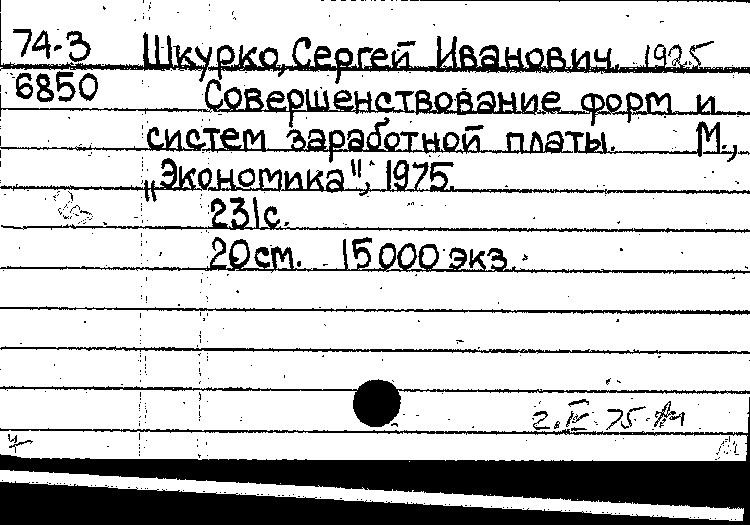 74-3 Шкурко, Сергей Иванович. 1925
6850 Совершенствование форм и
систем заработной платы. М.,
„Экономика", 1975.
231с.
20 ст. 15 000 экз.
75